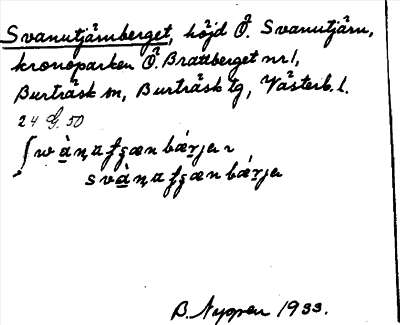 Svanutjärnberget, höjd Ö. Svanutjärn,
kronoparken Ö. Brattberget nr 1,
Burträsk sn, Burträsk tg, Västerb. l.
24 G. 50
B. Nygren 1933.